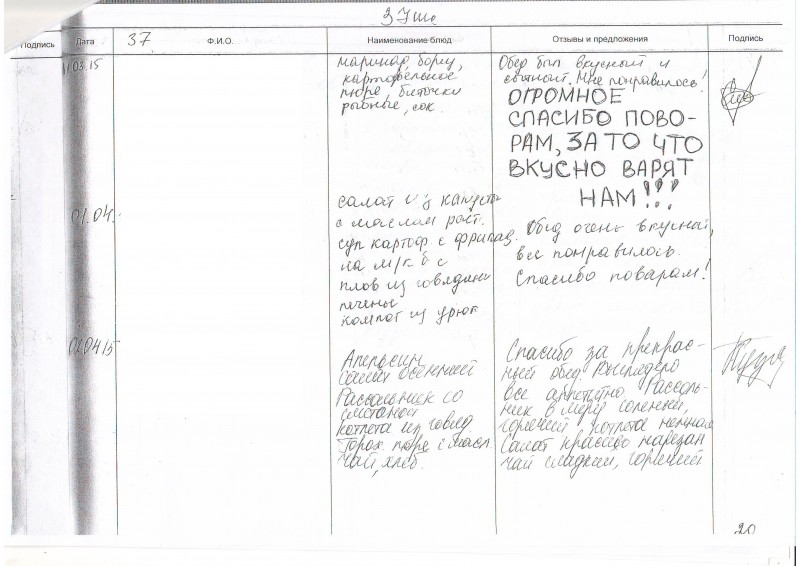 37 шк
Подпись Дата 37 Ф.И.О. Наименование блюд Отзывы и предложения Подпись
/03.15
маринад, борщ,
картофельное
пюре, биточки
рыбные, сок.
Обед был вкусный и
сытный. Мне понравилось!
ОГРОМНОЕ
СПАСИБО ПОВО-
РАМ, ЗА ТО ЧТО
ВКУСНО ВАРЯТ
НАМ!!!
01.04.
салат из капусты
с маслом раст.
суп картоф. с фрикад.
на м/к б с
плов из говядины
печенье
компот из урюк
Обед очень вкусный,
все понравилось.
Спасибо поварам!
02.04.15
Апельсин
Салат осенний
Рассольник со
сметаной
котлета из говяд.
Горох. пюре с масл.
Чай, хлеб.
Спасибо за прекрас-
ный обед. Выглядело
все аппетитно. Рассоль-
ник в меру соленый,
горячий, котлета
Салат красиво нарезан
чай сладкий, горячий
20